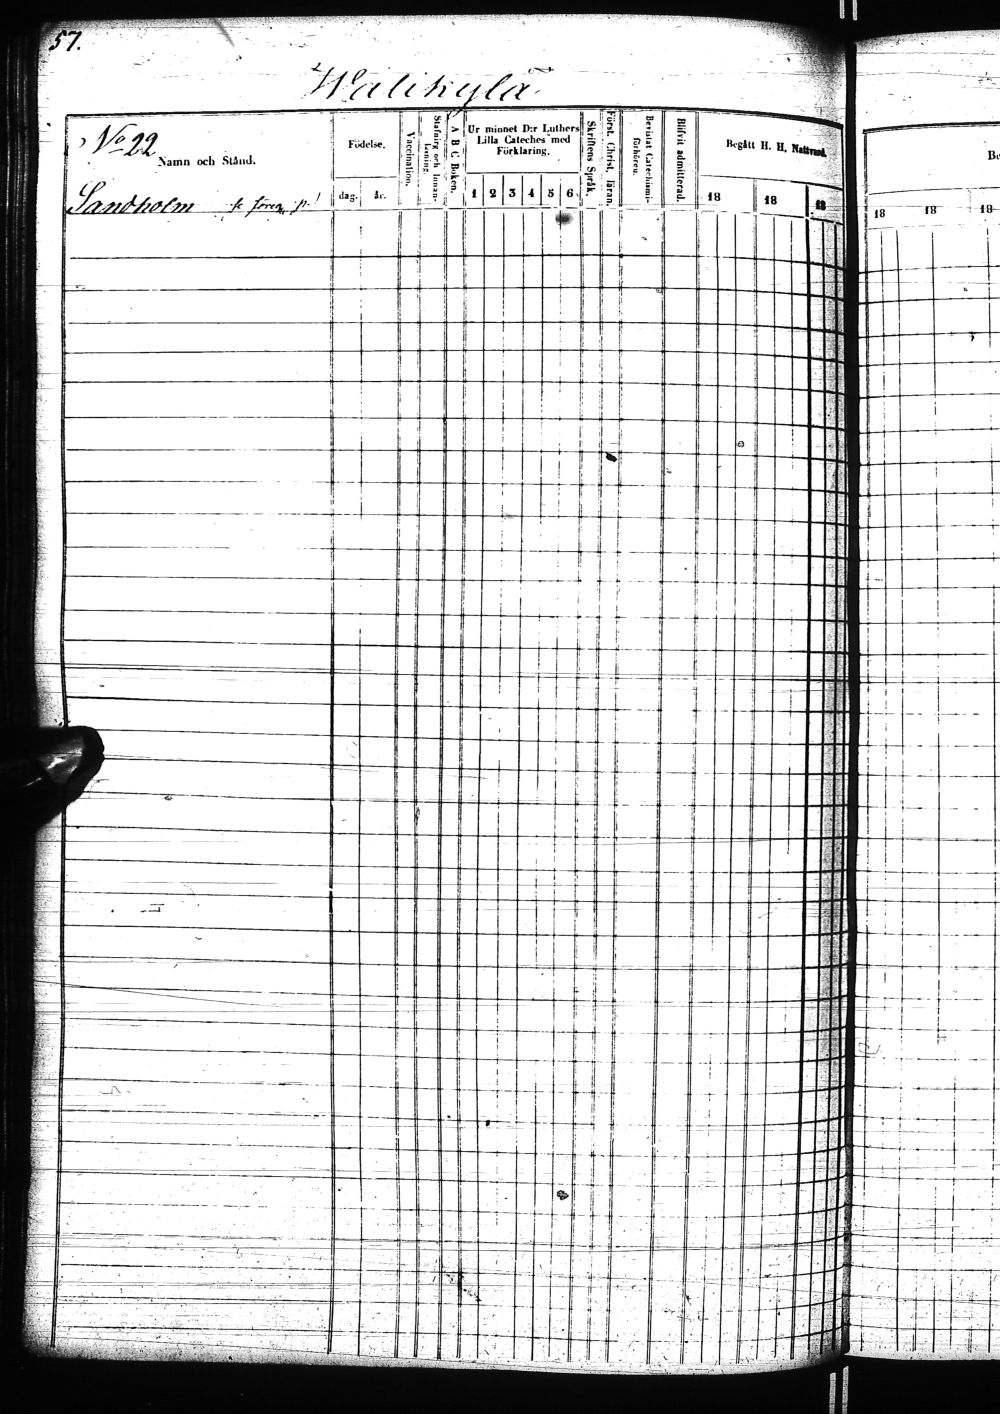 57.
Walikylä
No 22
Namn och Stånd.
Födelse.
dag. år.
Vaccination.
Stafning och Innan-
läsning.
A B C Boken.
Ur minnet D:r Luthers
Lilla Cateches med
Förklaring.
1 2 3 4 5 6
Skriftens Språk.
Först. Christ. läran.
Bevistat Catechismi-
förhören.
Blifvit admitterad.
Begått H. H. Nattvard.
18 18 18
Sandholm se föreg. p.!
Be
18 18 18